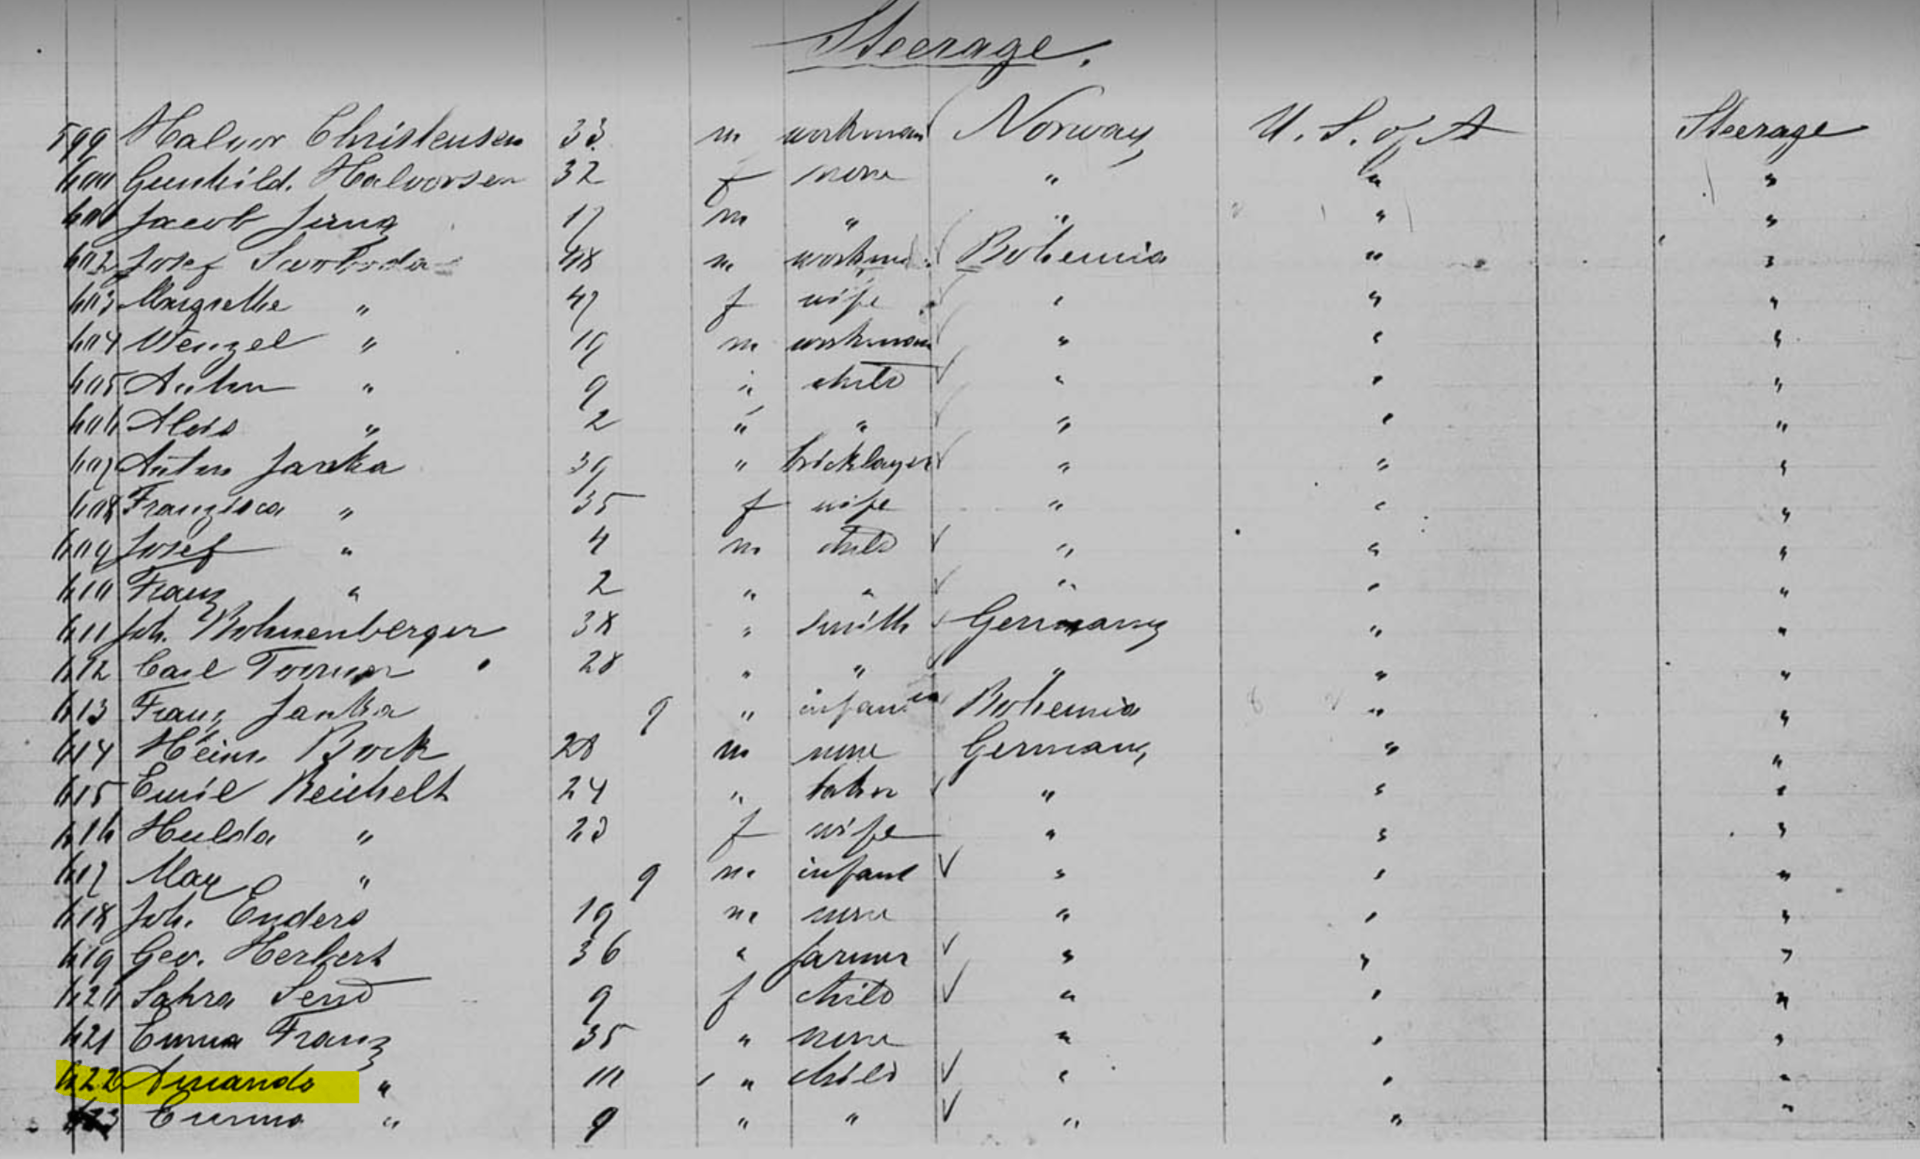 Steerage.
599 Halvor Christensen 33 m workman Norway U. S. of A Steerage
600 Gunhild. Halvorsen 32 f none " " "
601 Jacob 17 m " " " "
602 Josef Swoboda 48 m workman Bohemia " "
603 Margrethe " 47 f wife " " "
604 Wenzel " 19 m workman " " "
605 Anton " 9 " child " " "
606 Alois " 2 " " " " "
607 Anton Janka 39 " bricklayer " " "
608 Franzisca " 35 f wife " " "
609 Josef " 4 m child " " "
610 Franz " 2 " " " " "
611 Joh. Bohnenberger 38 " smith Germany " "
612 Carl 28 " " " " "
613 Franz Janka 9 " infant Bohemia " "
614 Heinr. Bock 28 m none Germany " "
615 Emil Reichelt 24 " " " "
616 Hulda " 23 f wife " " "
617 Max " 9 m infant " " "
618 Joh. Enders 19 m none " " "
619 Geo. Herbert 36 " farmer " " "
620 Sahra 9 f child " " "
621 Emma Franz 35 " none " " "
622 Amanda " 10 " child " " "
623 Emma " 9 " " " " "